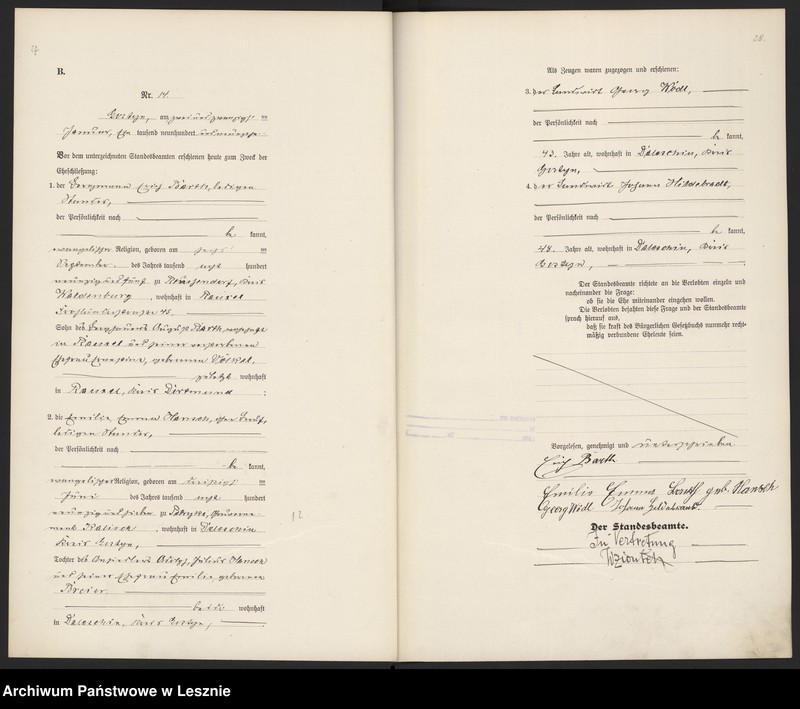 27
B.
Nr. 14
Gostyn, am zwei und zwanzigsten
Januar tausend neunhundert und
Vor dem unterzeichneten Standesbeamten erschienen heute zum Zweck der
Eheschließung:
1. der Bergmann Erich Barth, ledigen
Standes,
der Persönlichkeit nach
be kannt,
evangelischer Religion, geboren am
September des Jahres tausend acht hundert
neunzig und fünf zu Kreis
Waldenburg, wohnhaft in Rauxel
45,
Sohn des August Barth, wohnhaft
in Rauxel und seiner verstorbenen
Ehefrau Ernestine, geborenen
zuletzt wohnhaft
in Rauxel, Kreis Dortmund :
2. die Emilie Emma Hansch, ohne Beruf,
ledigen Standes,
der Persönlichkeit nach
be kannt,
evangelischer Religion, geboren am dreißigsten
Juni des Jahres tausend acht hundert
neunzig und sieben zu Gouverne-
ment Kalisch, wohnhaft in Daleschin
Kreis Gostyn,
Tochter des Ansiedlers Julius Hansch
und seiner Ehefrau Emilie, geborenen
Breier
beide wohnhaft
in Daleschin, Kreis Gostyn,
28.
Als Zeugen waren zugezogen und erschienen:
3. der Landwirt Georg Wödl,
der Persönlichkeit nach
be kannt,
43 Jahre alt, wohnhaft in Daleschin, Kreis
Gostyn,
4. der Landwirt Johann Hildebradt,
der Persönlichkeit nach
be kannt,
48 Jahre alt, wohnhaft in Daleschin, Kreis
Gostyn,
Der Standesbeamte richtete an die Verlobten einzeln und
nacheinander die Frage:
ob sie die Ehe miteinander eingehen wollen.
Die Verlobten bejahten diese Frage und der Standesbeamte
sprach hierauf aus,
daß sie kraft des Bürgerlichen Gesetzbuchs nunmehr recht-
mäßig verbundene Eheleute seien.
Vorgelesen, genehmigt und unterschrieben
Erich Barth
Emilie Emma Barth geb. Hansch
Georg Wödl Johann
Der Standesbeamte.
In Vertretung
Archiwum Państwowe w Lesznie